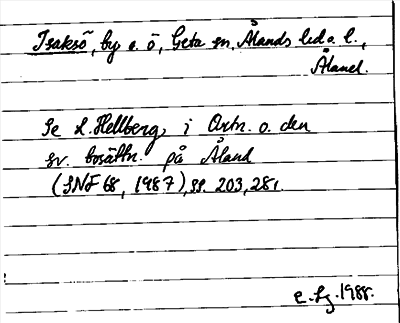 Isaksö, by o. ö, Geta sn, Ålands lud o. l.,
Åland.
Se L. Hellberg, i Ortn. o. den
sv. bosättn. på Åland
(SNF 68, 1987), ss. 203, 281.
E. Lg. 1988.